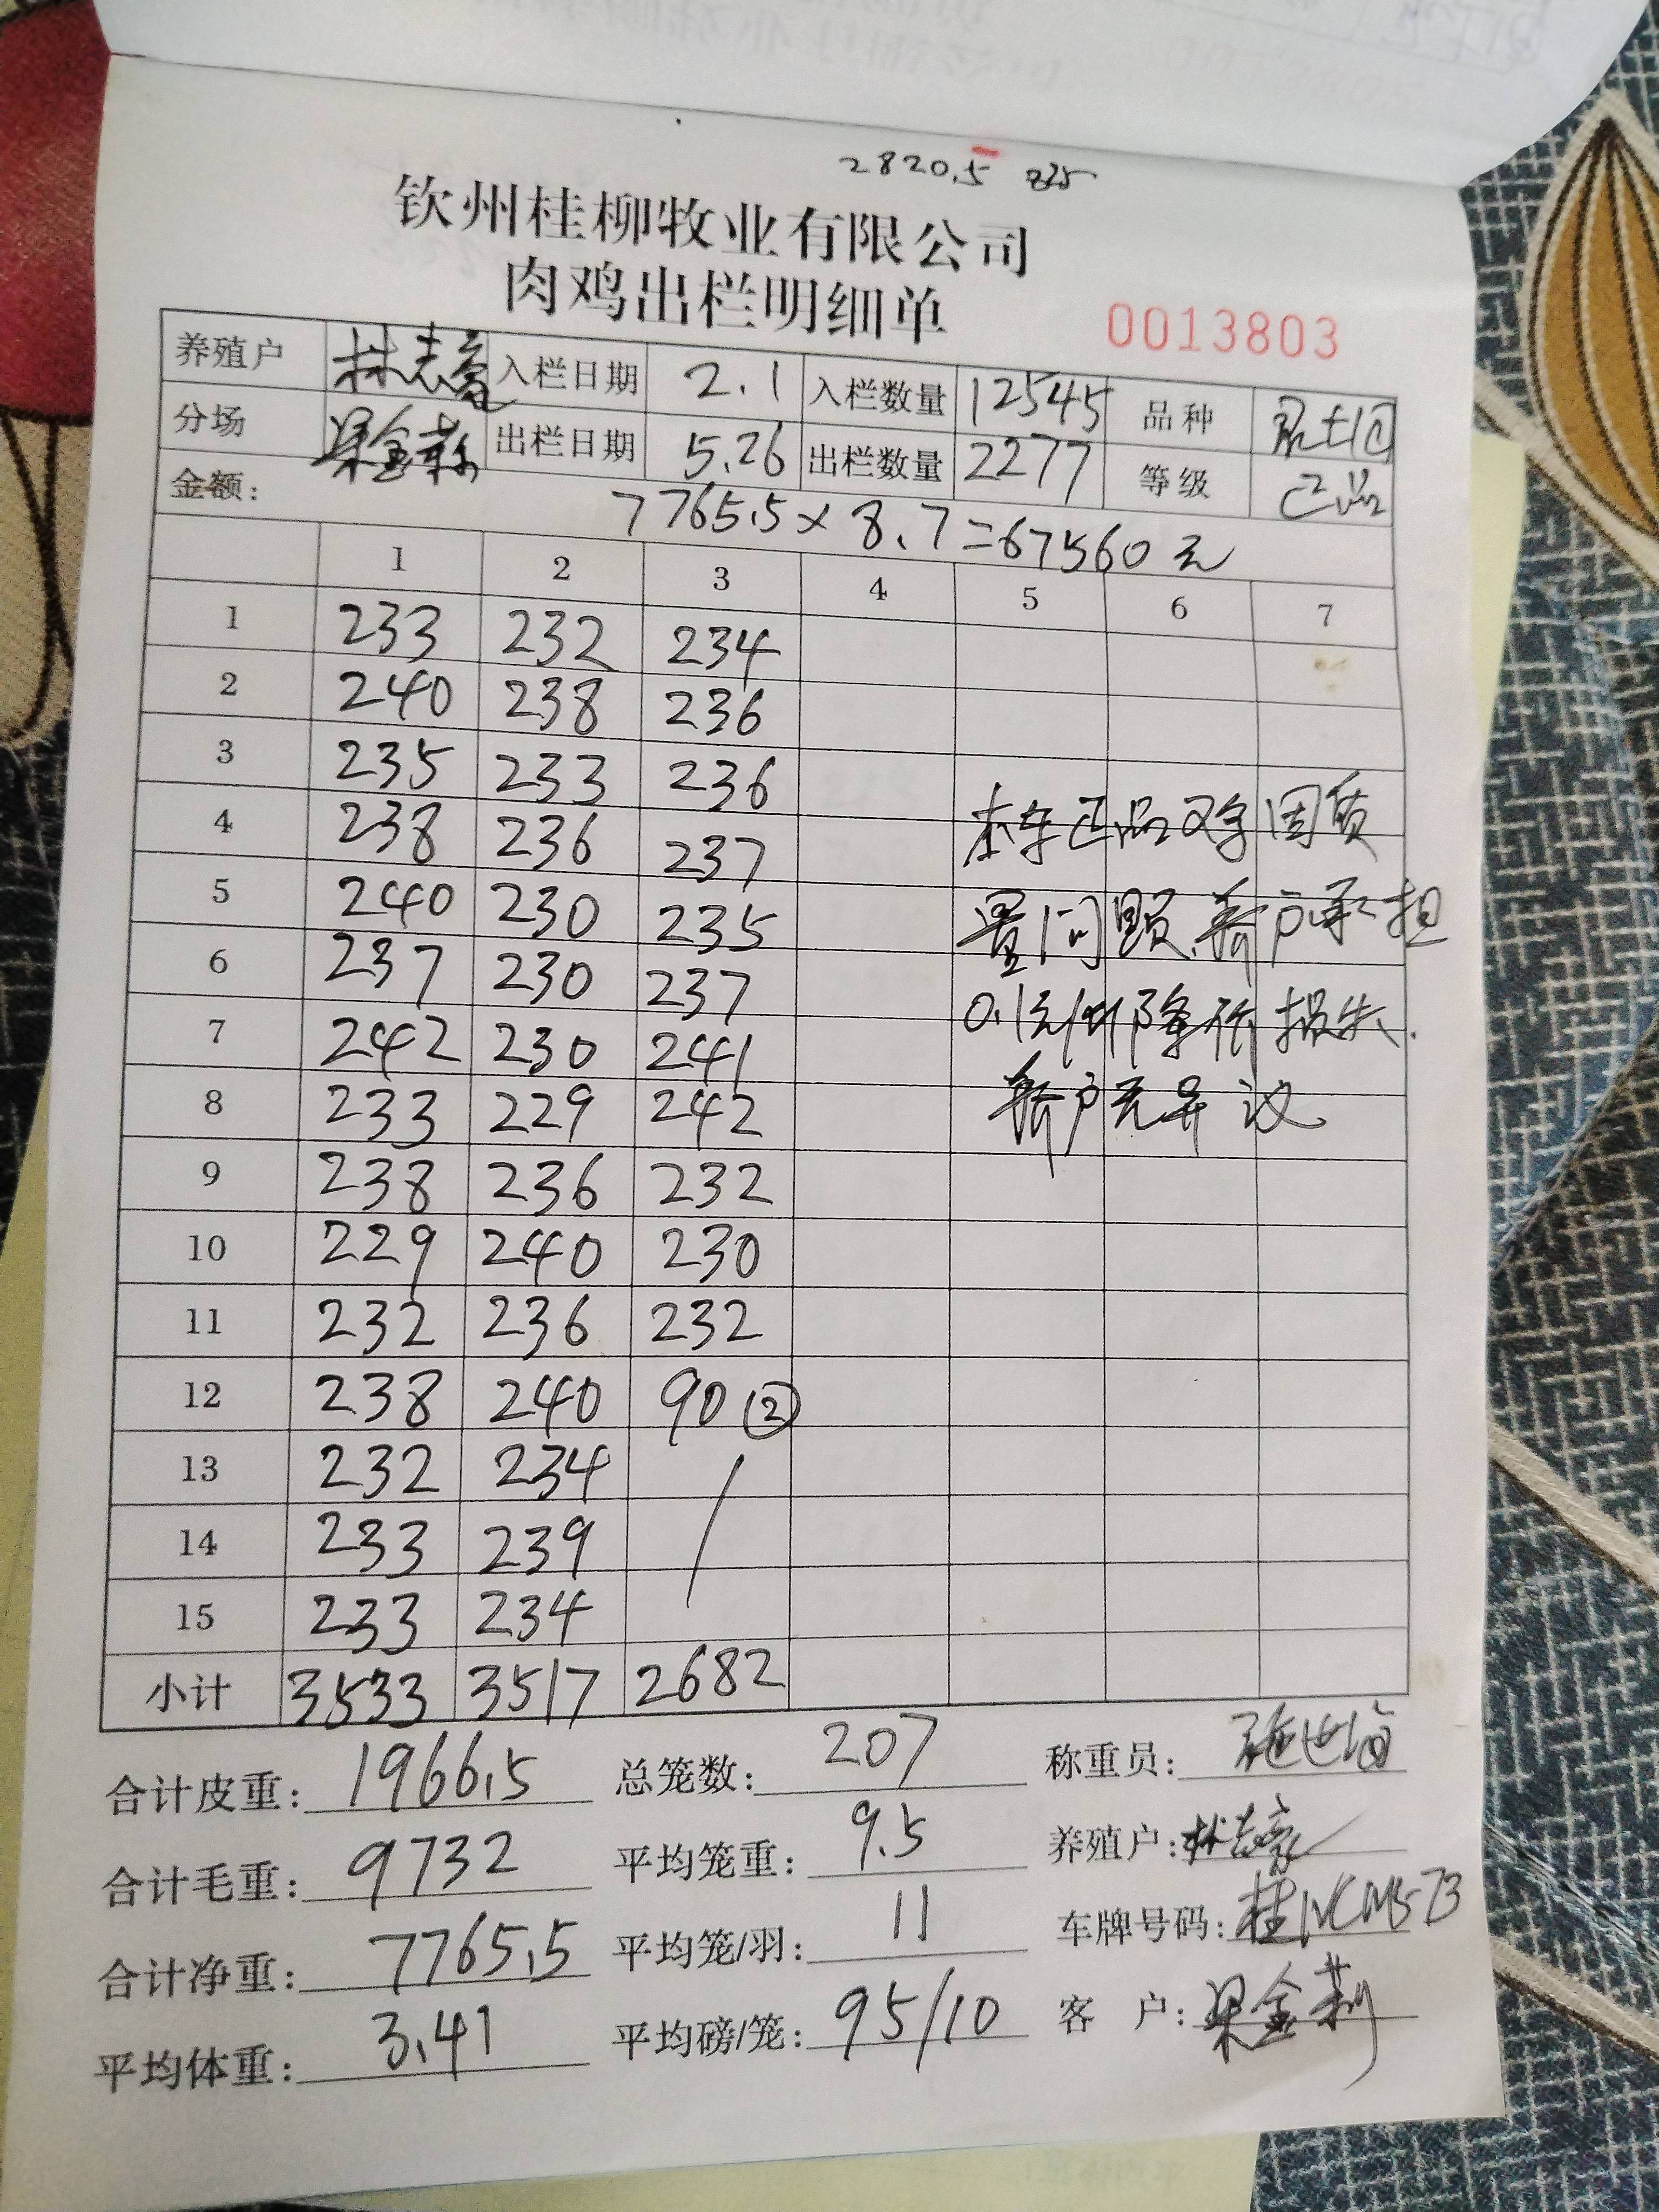 2820.5
钦州桂柳牧业有限公司
肉鸡出栏明细单
0013803
养殖户 林志豪 入栏日期 2.1 入栏数量 12545 品种
分场 梁金莉 出栏日期 5.26 出栏数量 2277 等级 正品
金额: 7765.5×8.7=67560元
1 2 3 4 5 6 7
1 233 232 234
2 240 238 236
3 235 233 236
4 238 236 237
5 240 230 235
6 237 230 237
7 242 230 241
8 233 229 242
9 238 236 232
10 229 240 230
11 232 236 232
12 238 240 90②
13 232 234
14 233 239
15 233 234
本车正品又字因质
量问题,养户承担
0.1元/斤降价损失.
养户无异议
小计 3533 3517 2682
合计皮重: 1966.5 总笼数: 207 称重员:
合计毛重: 9732 平均笼重: 9.5 养殖户: 林志豪
合计净重: 7765.5 平均笼/羽: 11 车牌号码:
平均体重: 3.41 平均磅/笼: 95/10 客户: 梁金莉